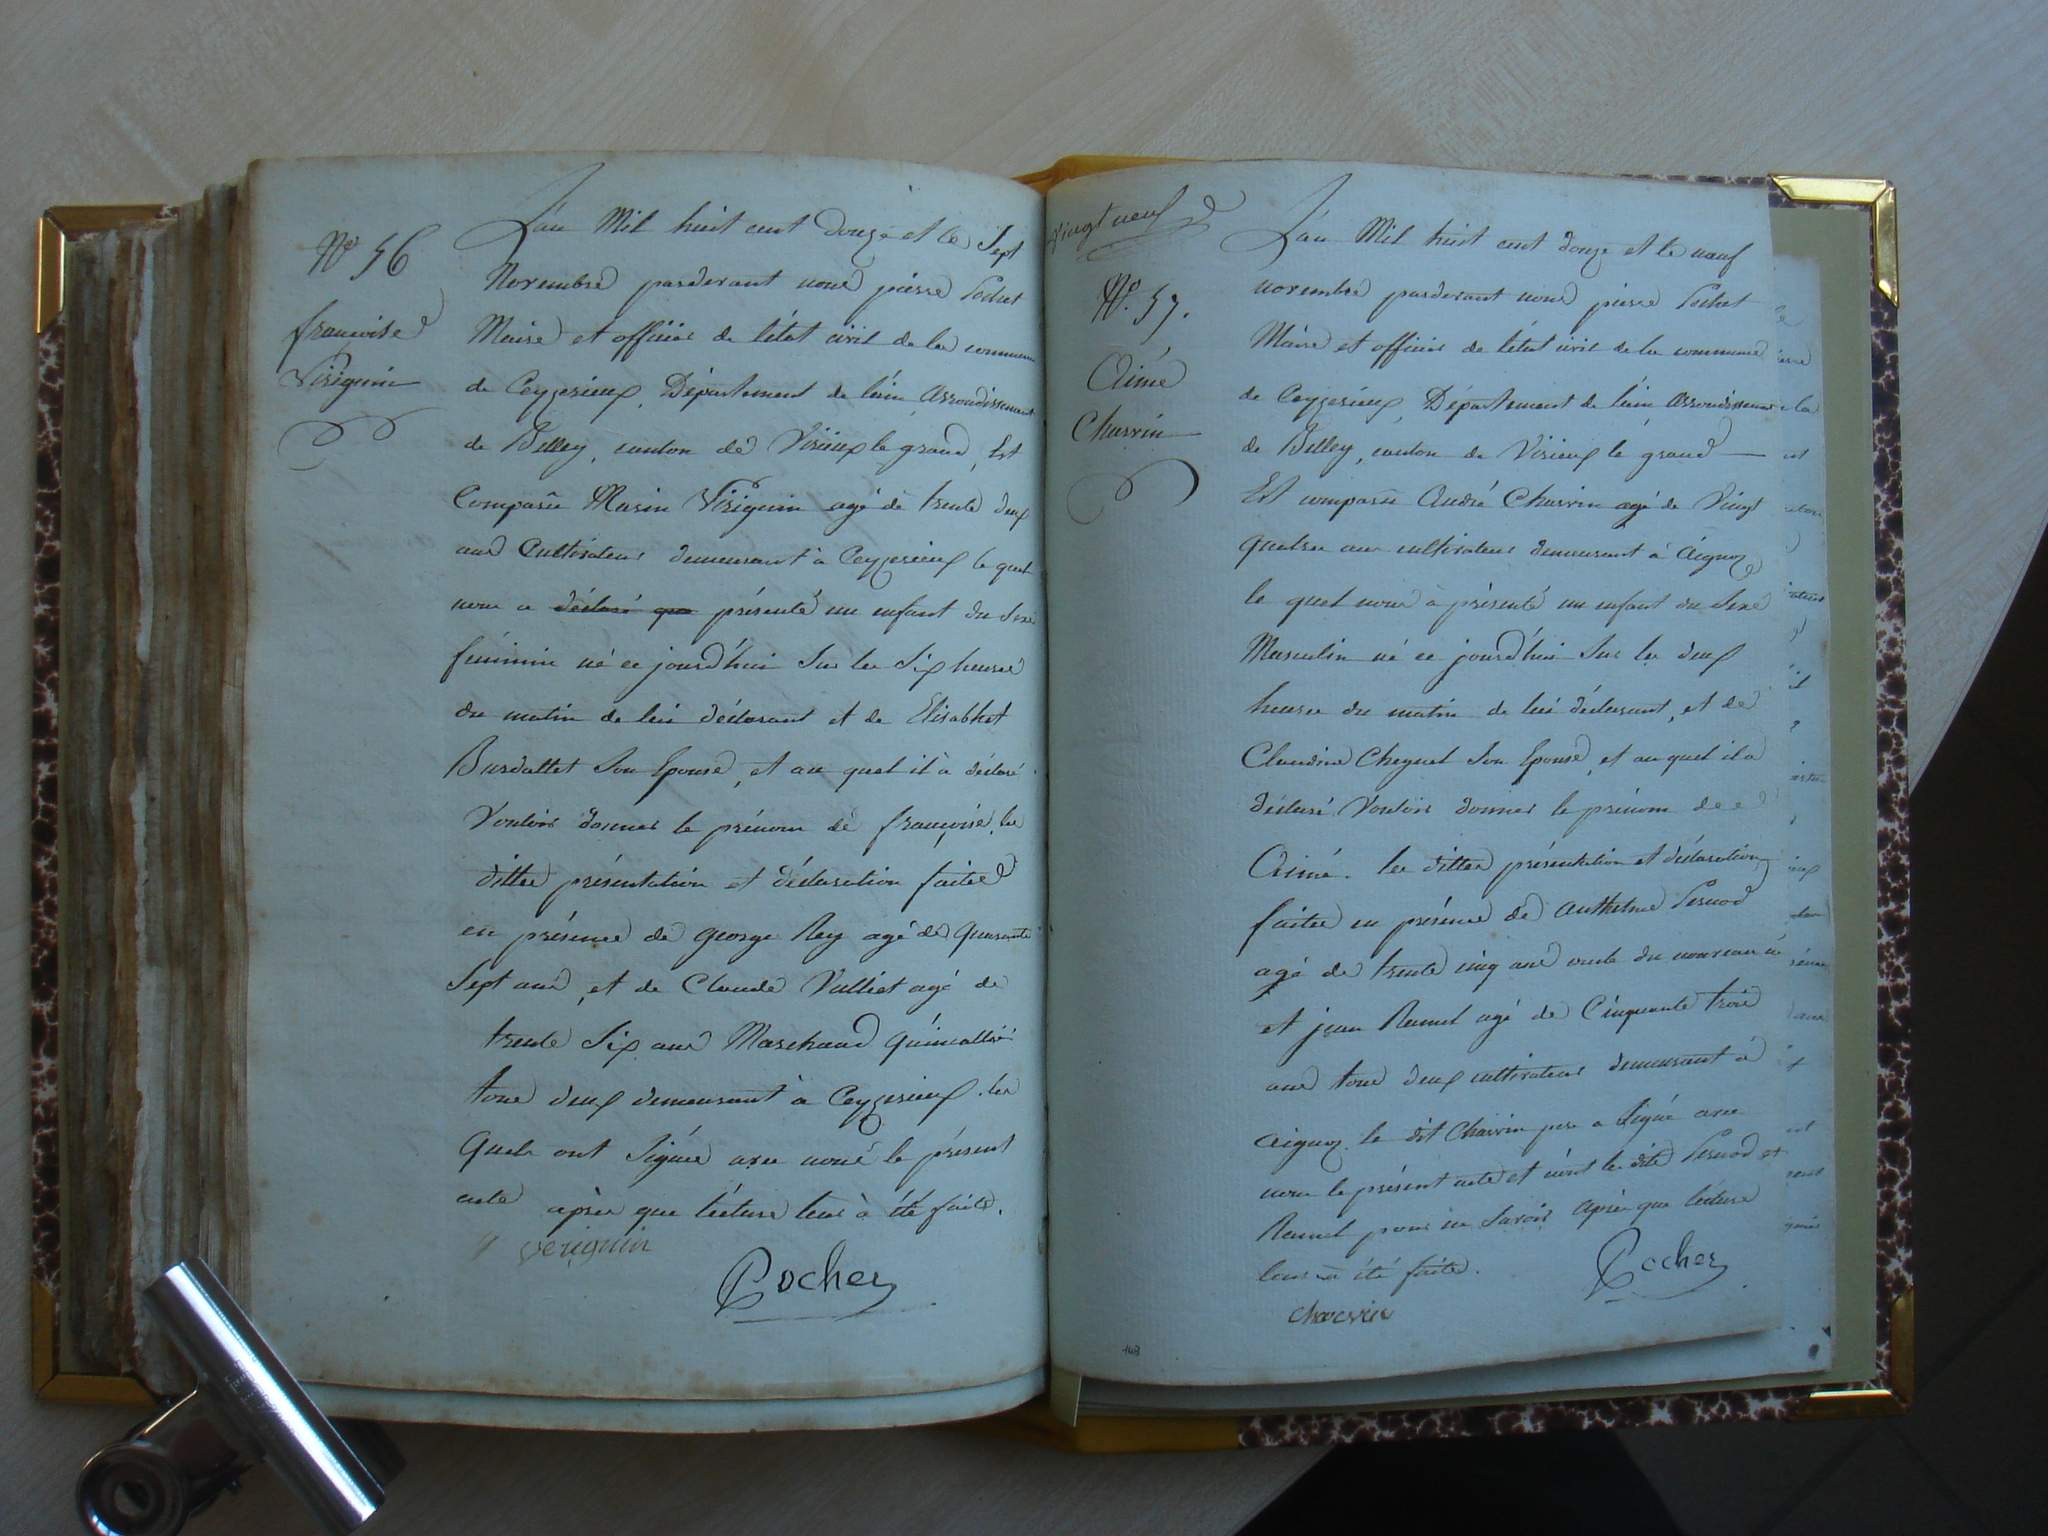 N° 56
françoise
Viriguin
L'an Mil huit cent douze et le Sept
Novembre pardevant nous pierre Pochet
Maire et officier de l'état civil de la commune
de Ceyzerieux, Département de l'ain, Arrondissement
de Belley, canton de Virieux le grand, Est
Comparu Marin Viriguin agé de trente deux
ans Cultivateur demeurant à Ceyzerieux le quel
nous a déclaré que présenté un enfant du Sexe
féminin né ce jourd'hui Sur les Six heures
du matin de lui déclarant et de Elisabhet
Burdallet Son Epouse, et au quel il à déclaré
Vouloir donner le prénom de françoise, les
dittes présentation et déclaration faites
en présence de george Rey agé de quarante
Sept ans, et de Claude Valliet agé de
trente Six ans Marchand quincallier
tous deux demeurant à Ceyzerieux. les
quels ont Signés avec nous le présent
acte après que lecture leur à été faite.
veriguin
Pochet
Vingt neuf
N°. 57.
Aimé
Charvin
L'an Mil huit cent douze et le neuf
novembre pardevant nous pierre Pochet
Maire et officier de l'état civil de la commune
de Ceyzerieux, Département de l'ain Arrondissement
de Belley, canton de Virieux le grand
Est comparu André Charvin agé de Vingt
quatre ans cultivateur demeurant à Aignoz
le quel nous à présenté un enfant du Sexe
Masculin né ce jourd'hui Sur les deux
heures du matin de lui déclarant, et de
Claudine Cheynel Son Epouse, et au quel il a
déclaré Vouloir donner le prénom de
Aimé. les dittes présentation et déclaration
faites en présence de Anthelme Pernod
agé de trente cinq ans oncle du nouveau né
et jean Remel agé de Cinquante trois
ans tous deux cultivateurs demeurant à
Aignoz. le dit Charvin pere a Signé avec
nous le présent acte et non les dits Pernod et
Remel pour ne Savoir après que lecture
leur à été faite.
Pochet
charvin
143